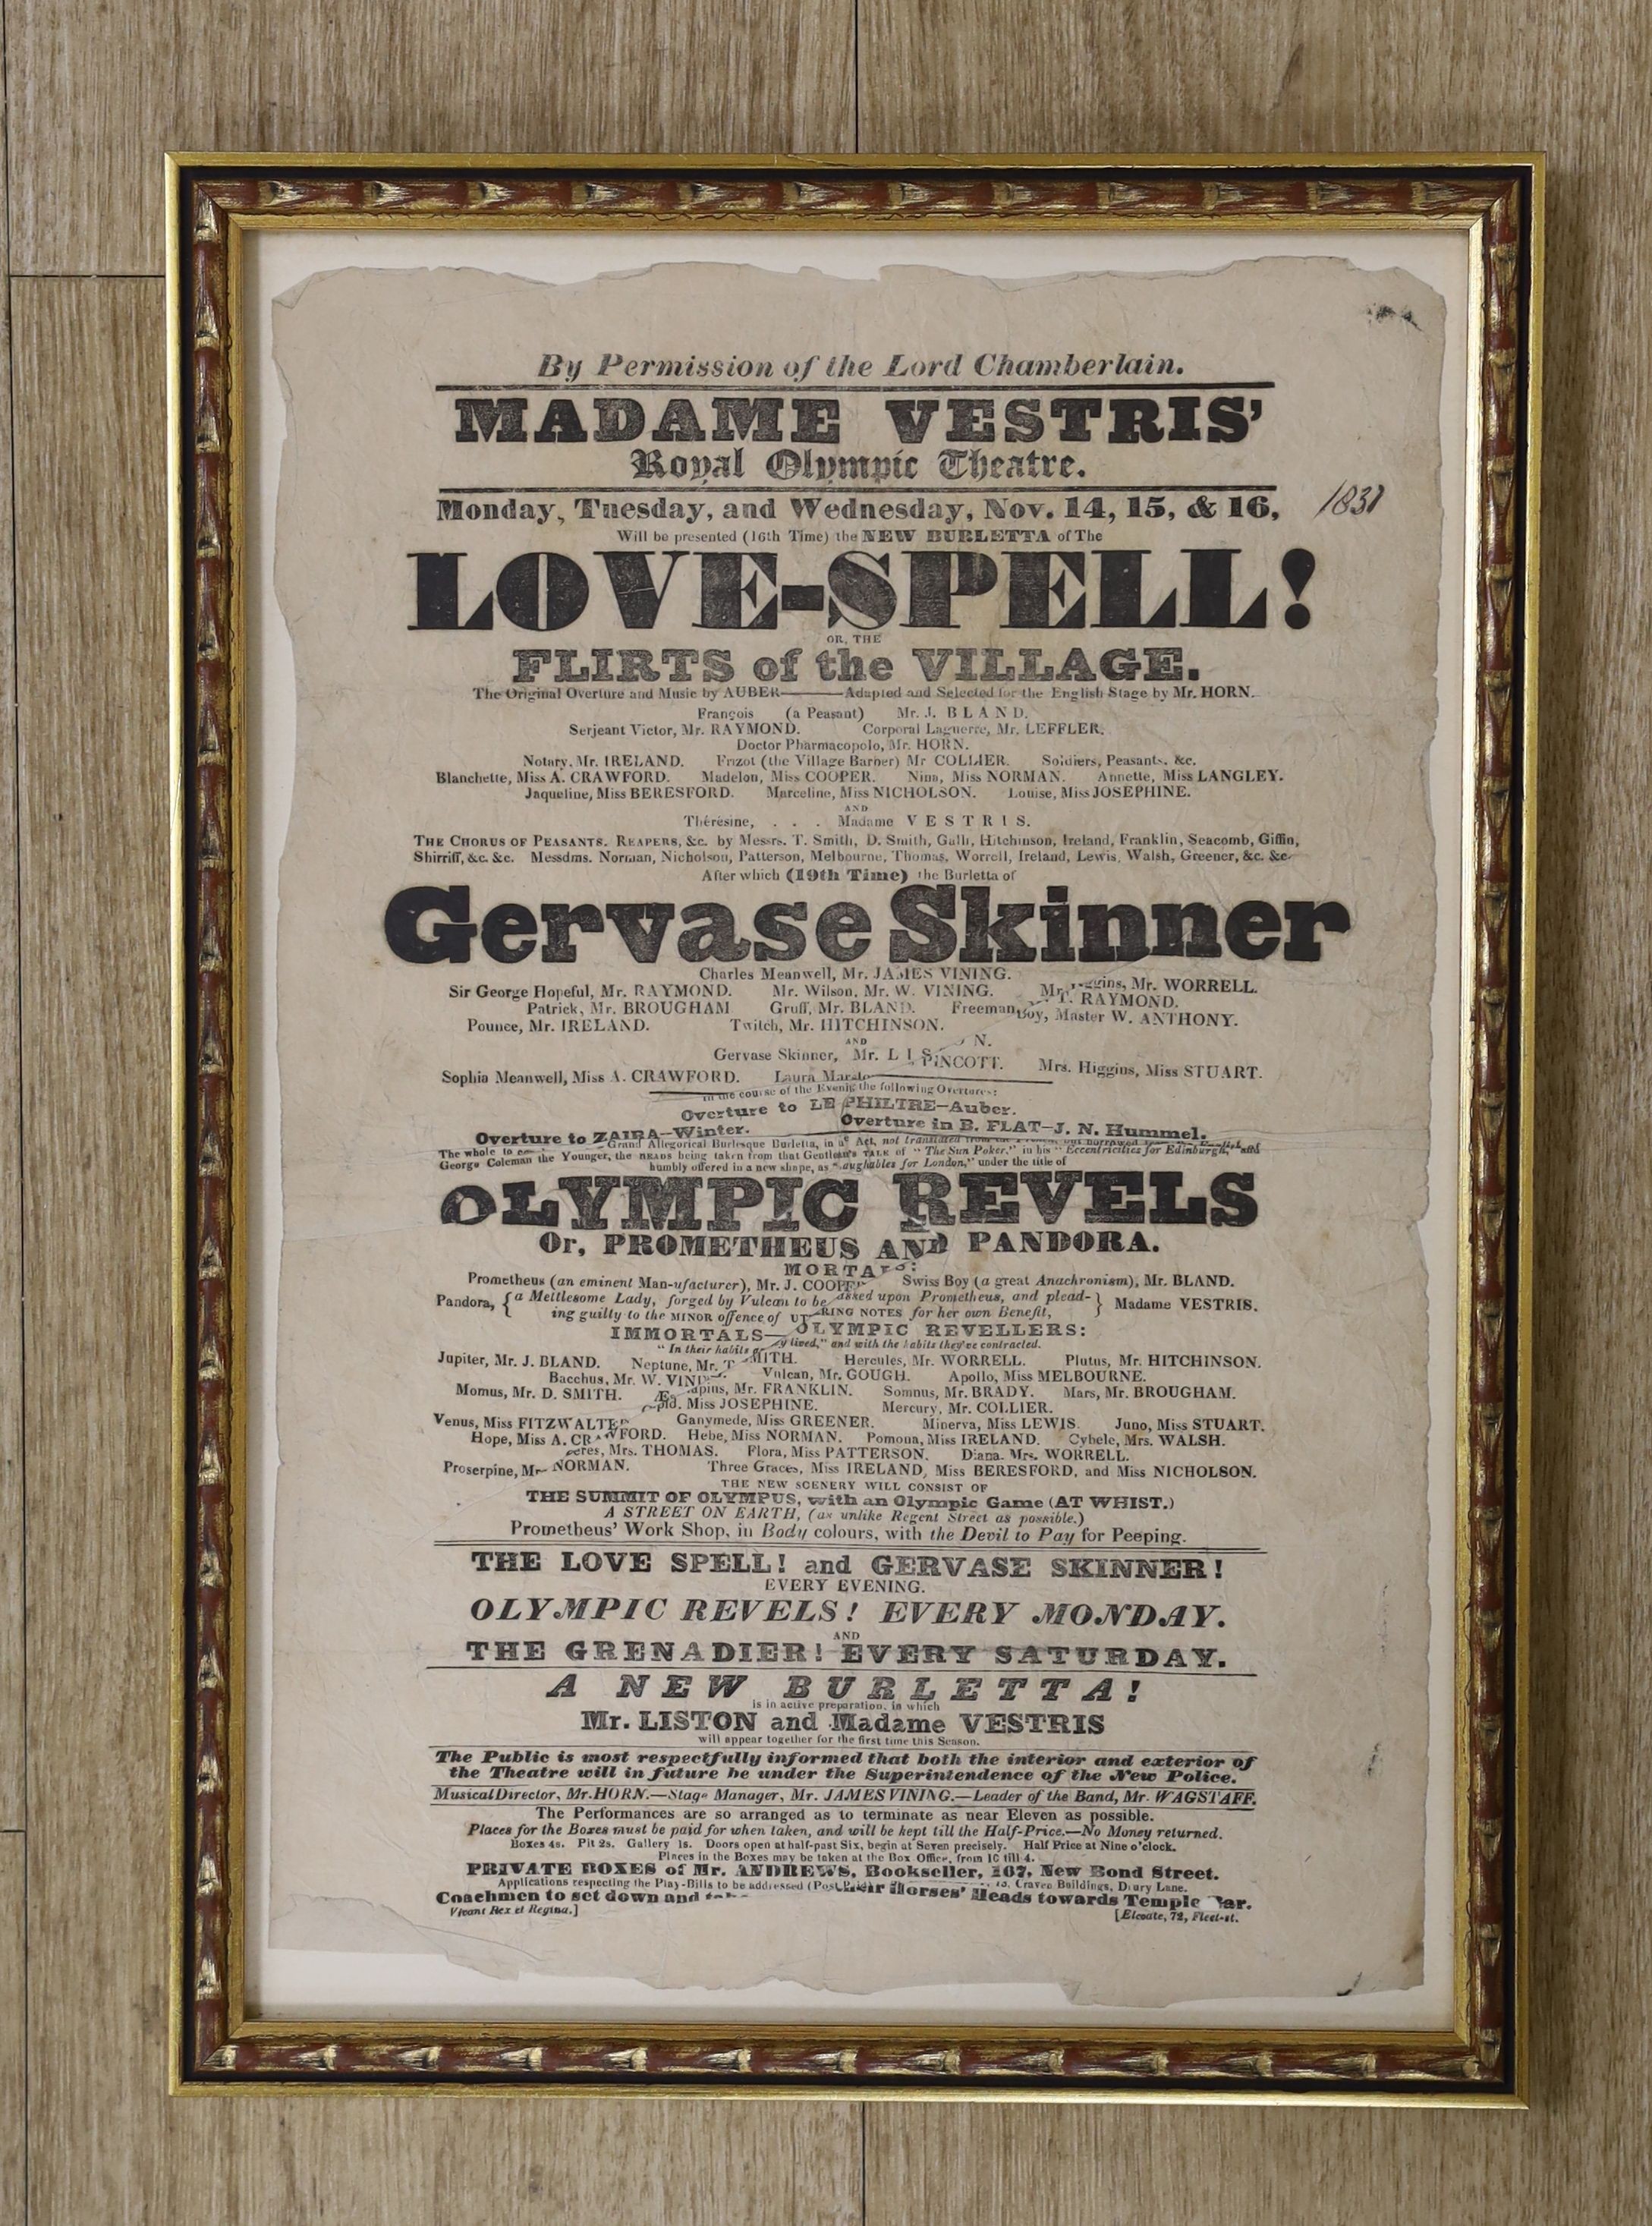 By Permission of the Lord Chamberlain.
MADAME VESTRIS'
Royal Olympic Theatre.
Monday, Tuesday, and Wednesday, Nov. 14, 15, & 16, 1831
Will be presented (16th Time) the NEW BURLETTA of The
LOVE-SPELL!
OR, THE
FLIRTS of the VILLAGE.
The Original Overture and Music by AUBER——Adapted and Selected for the English Stage by Mr. HORN.
François (a Peasant) Mr. J. BLAND.
Serjeant Victor, Mr. RAYMOND. Corporal Laguerre, Mr. LEFFLER.
Doctor Pharmacopolo, Mr. HORN.
Notary, Mr. IRELAND. Frizot (the Village Barber) Mr COLLIER. Soldiers, Peasants, &c.
Blanchette, Miss A. CRAWFORD. Madelon, Miss COOPER. Nina, Miss NORMAN. Annette, Miss LANGLEY.
Jaqueline, Miss BERESFORD. Marceline, Miss NICHOLSON. Louise, Miss JOSEPHINE.
AND
Thérésine, . . . Madame VESTRIS.
THE CHORUS OF PEASANTS, REAPERS, &c. by Messrs. T. Smith, D. Smith, Galli, Hitchinson, Ireland, Franklin, Seacomb, Giffin,
Shirriff, &c. &c. Messdms. Norman, Nicholson, Patterson, Melbourne, Thomas, Worrell, Ireland, Lewis, Walsh, Greener, &c. &c.
After which (19th Time) the Burletta of
Gervase Skinner
Charles Meanwell, Mr. JAMES VINING.
Sir George Hopeful, Mr. RAYMOND. Mr. Wilson, Mr. W. VINING. Mr. ggins, Mr. WORRELL.
Patrick, Mr. BROUGHAM Gruff, Mr. BLAND. Freeman, T. RAYMOND.
Pounce, Mr. IRELAND. Twitch, Mr. HITCHINSON. Boy, Master W. ANTHONY.
AND
Gervase Skinner, Mr. LIS N.
Sophia Meanwell, Miss A. CRAWFORD. Laura PINCOTT. Mrs. Higgins, Miss STUART.
In the course of the Evenig the following Overtures:
Overture to LE PHILTRE—Auber.
Overture to ZAIRA—Winter. Overture in B. FLAT—J. N. Hummel.
The whole to Grand Allegorical Burlesque Burletta, in Act, not translated from the but borrowed English of
George Coleman the Younger, the HEADS being taken from that Gentleman's TALE of "The Sun Poker," in his "Eccentricities for Edinburgh," and
humbly offered in a new shape, as "aughables for London," under the title of
OLYMPIC REVELS
Or, PROMETHEUS AND PANDORA.
MORTA S:
Prometheus (an eminent Man-ufacturer), Mr. J. COOPER Swiss Boy (a great Anachronism), Mr. BLAND.
Pandora, {a Mettlesome Lady, forged by Vulcan to be asked upon Prometheus, and plead-} Madame VESTRIS.
ing guilty to the MINOR offence of UT RING NOTES for her own Benefit,
IMMORTALS—OLYMPIC REVELLERS:
"In their habits y lived," and with the habits they've contracted.
Jupiter, Mr. J. BLAND. Neptune, Mr. T MITH. Hercules, Mr. WORRELL. Plutus, Mr. HITCHINSON.
Bacchus, Mr. W. VIN Vulcan, Mr. GOUGH. Apollo, Miss MELBOURNE.
Momus, Mr. D. SMITH. Æs apius, Mr. FRANKLIN. Somnus, Mr. BRADY. Mars, Mr. BROUGHAM.
pid, Miss JOSEPHINE. Mercury, Mr. COLLIER.
Venus, Miss FITZWALTER Ganymede, Miss GREENER. Minerva, Miss LEWIS. Juno, Miss STUART.
Hope, Miss A. CRAWFORD. Hebe, Miss NORMAN. Pomona, Miss IRELAND. Cybele, Mrs. WALSH.
eres, Mrs. THOMAS. Flora, Miss PATTERSON. Diana, Mrs. WORRELL.
Proserpine, Mr NORMAN. Three Graces, Miss IRELAND, Miss BERESFORD, and Miss NICHOLSON.
THE NEW SCENERY WILL CONSIST OF
THE SUMMIT OF OLYMPUS, with an Olympic Game (AT WHIST.)
A STREET ON EARTH, (as unlike Regent Street as possible.)
Prometheus' Work Shop, in Body colours, with the Devil to Pay for Peeping.
THE LOVE SPELL! and GERVASE SKINNER!
EVERY EVENING.
OLYMPIC REVELS! EVERY MONDAY.
AND
THE GRENADIER! EVERY SATURDAY.
A NEW BURLETTA!
is in active preparation, in which
Mr. LISTON and Madame VESTRIS
will appear together for the first time this Season.
The Public is most respectfully informed that both the interior and exterior of
the Theatre will in future be under the Superintendence of the New Police.
Musical Director, Mr. HORN.—Stage Manager, Mr. JAMES VINING.—Leader of the Band, Mr. WAGSTAFF.
The Performances are so arranged as to terminate as near Eleven as possible.
Places for the Boxes must be paid for when taken, and will be kept till the Half-Price.—No Money returned.
Boxes 4s. Pit 2s. Gallery 1s. Doors open at half-past Six, begin at Seven precisely. Half Price at Nine o'clock.
Places in the Boxes may be taken at the Box Office, from 10 till 4.
PRIVATE BOXES of Mr. ANDREWS, Bookseller, 167, New Bond Street.
Applications respecting the Play-Bills to be addressed (Post Craven Buildings, Drury Lane.
Coachmen to set down and their Horses' Heads towards Temple Bar.
Vivant Rex et Regina.] [Elcoate, 72, Fleet-st.